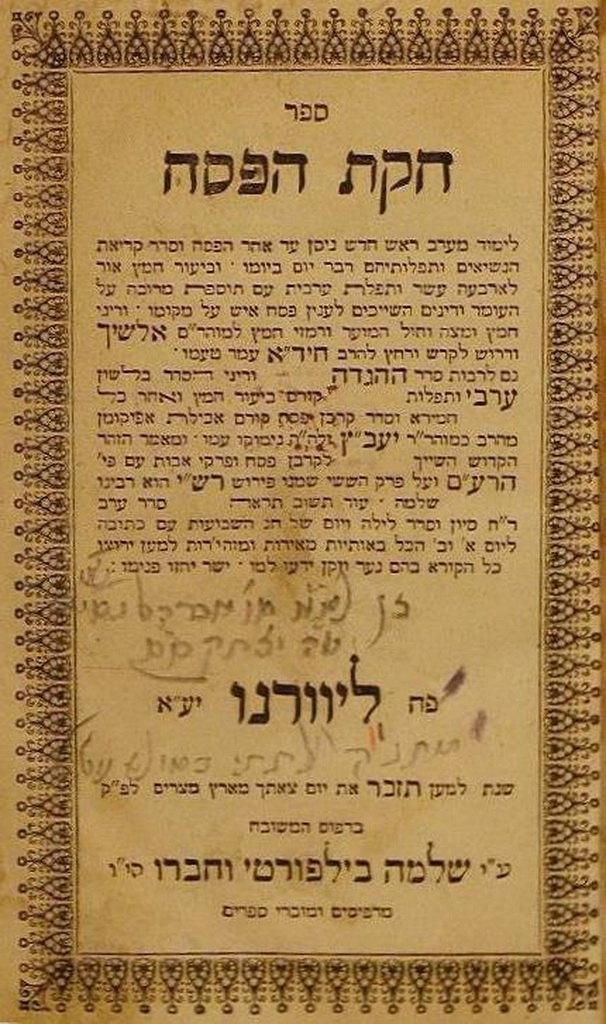 ספר
חקת הפסח
לימוד מערב ראש חדש ניסן עד אחר הפסח וסדר קריאת
הנשיאים ותפלותיהם דבר יום ביומו · וביעור חמץ אור
לארבעה עשר ותפלת ערבית עם תוספת מרובה על
העומר ודינים השייכים לענין פסח איש על מקומו · ודיני
חמץ ומצה וחול המועד ורמזי חמץ למוהר״ם אלשיך
ודרוש לקדש ורחץ להרב חיד״א עמד טעמו ·
גם לרבות סדר ההגדה ודיני הסדר בלשון
ערבי ותפלות קודם ביעור חמץ ואחר כל
חמירא וסדר קרבן פסח קודם אכילת אפיקומן
מהרב כמוהר״ר יעב״ץ זלה״ה נימוקו עמו · ומאמר הזהר
הקדוש השייך לקרבן פסח ופרקי אבות עם פי׳
הרע״ם ועל פרק הששי שמנו פירוש רש״י הוא רבינו
שלמה · עוד תשוב תראה סדר ערב
ר״ח סיון וסדר לילה ויום של חג השבועות עם כתובה
ליום א׳ וב׳ הכל באותיות מאירות ומזהירות למען ירוצו
כל הקורא בהם נער וזקן ידעו למו · ישר יחזו פנימו :.
פה ליוורנו יע״א
שנת למען תזכר את יום צאתך מארץ מצרים לפ״ק
בדפוס המשובח
ע״י שלמה בילפורטי וחברו הי״ו
מדפיסים ומוכרי ספרים